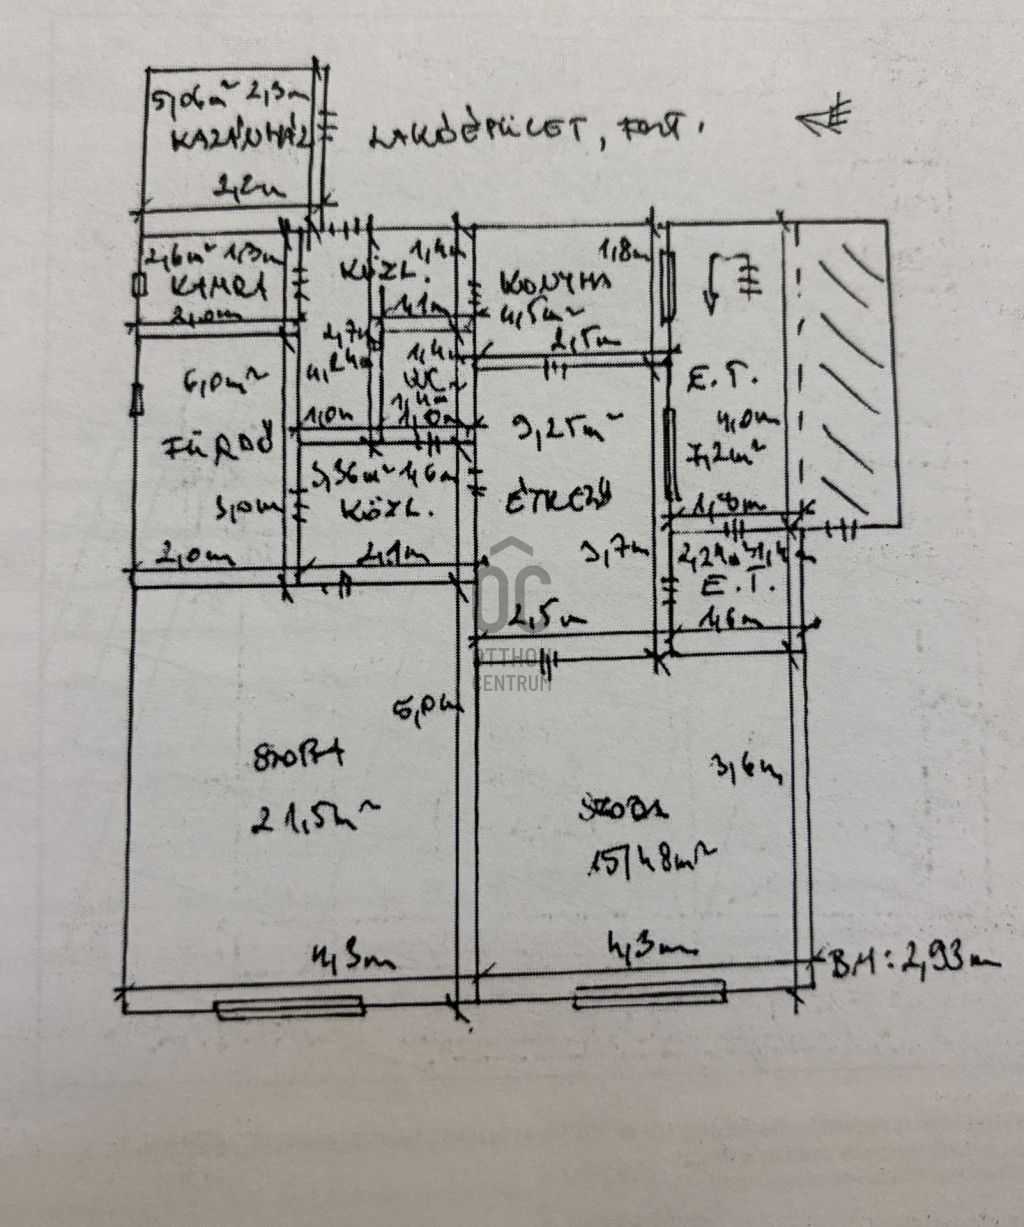 5,06m² 2,3m
KAZÁNHÁZ
2,2m
LAKÓÉPÜLET, FSZT.
2,6m² 1,3m
KAMRA
2,0m
KÖZL.
1,4m
1,1m
2,7m
4,24m
1,0m
1,4m
WC
1,4m
1,0m
1,8m
KONYHA
4,5m²
2,5m
6,0m²
FÜRDŐ
3,0m
2,0m
3,36m² 1,6m
KÖZL.
2,1m
9,25m²
ÉTKEZŐ
3,7m
2,5m
E.T.
4,0m
7,2m²
1,8m
2,24m² 1,4m
E.T.
1,6m
OC
OTTHON
CENTRUM
5,0m
SZOBA
21,5m²
4,3m
3,6m
SZOBA
15,48m²
4,3m
BM: 2,93m